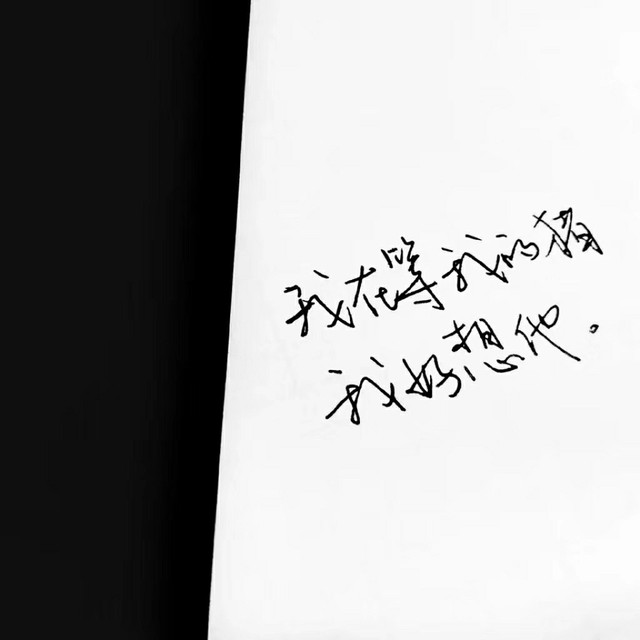 我在等我的猪
我好想他。